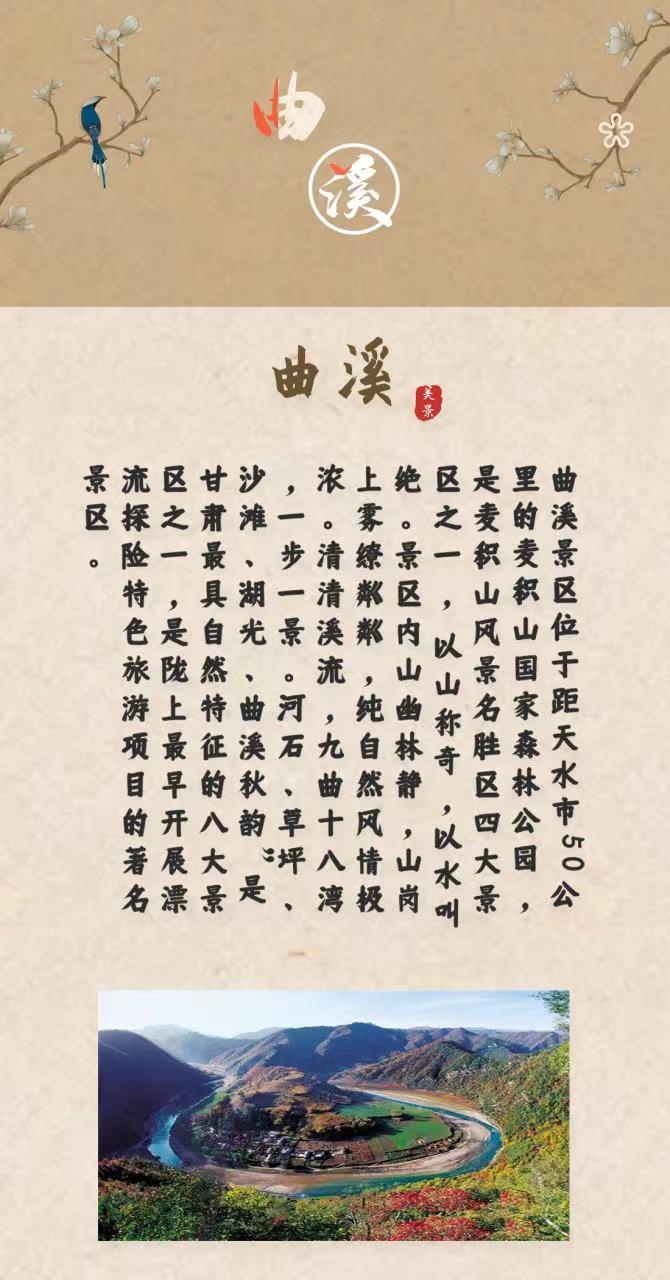 曲
溪
曲溪
美景
曲溪景区位于距天水市50公
里的麦积山国家森林公园，
是麦积山风景名胜区四大景
区之一，以山称奇，以水叫
绝。景区内山幽林静，山岗
上雾缭粼粼，纯自然风情极
浓。清清溪流，九曲十八湾
，一步一景。河石、草坪、
沙滩、湖光、曲溪秋韵”是
甘肃最具自然特征的八大景
区之一，是陇上最早开展漂
流探险特色旅游项目的著名
景区。